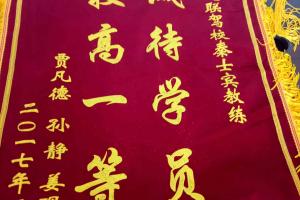 联驾校秦士宾教练
诚待学员
高一等
贾凡德 孙静 姜
二〇一七年